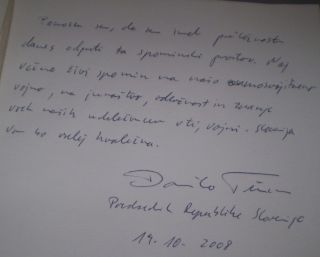 Ponosen sem, da sem imel priložnost
danes odpreti ta spominski prostor. Naj
večno živi spomin na našo osamosvojitveno
vojno, na junaštvo, odločnost in znanje
vseh naših udeležencev v tej vojni. Slovenija
Vam bo vselej hvaležna.
Danilo Türk
Predsednik Republike Slovenije
19-10-2008